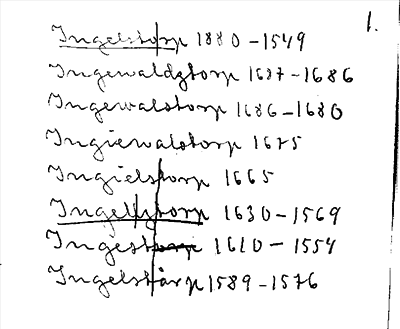 1.
Ingelstorp 1880-1549
Ingewaldztorp 1687-1686
Ingewalstorp 1686-1680
Ingiewalstorp 1675
Ingielstorp 1665
Ingelsztorp 1630-1569
Ingestorp 1610-1554
Ingelstårp 1589-1576